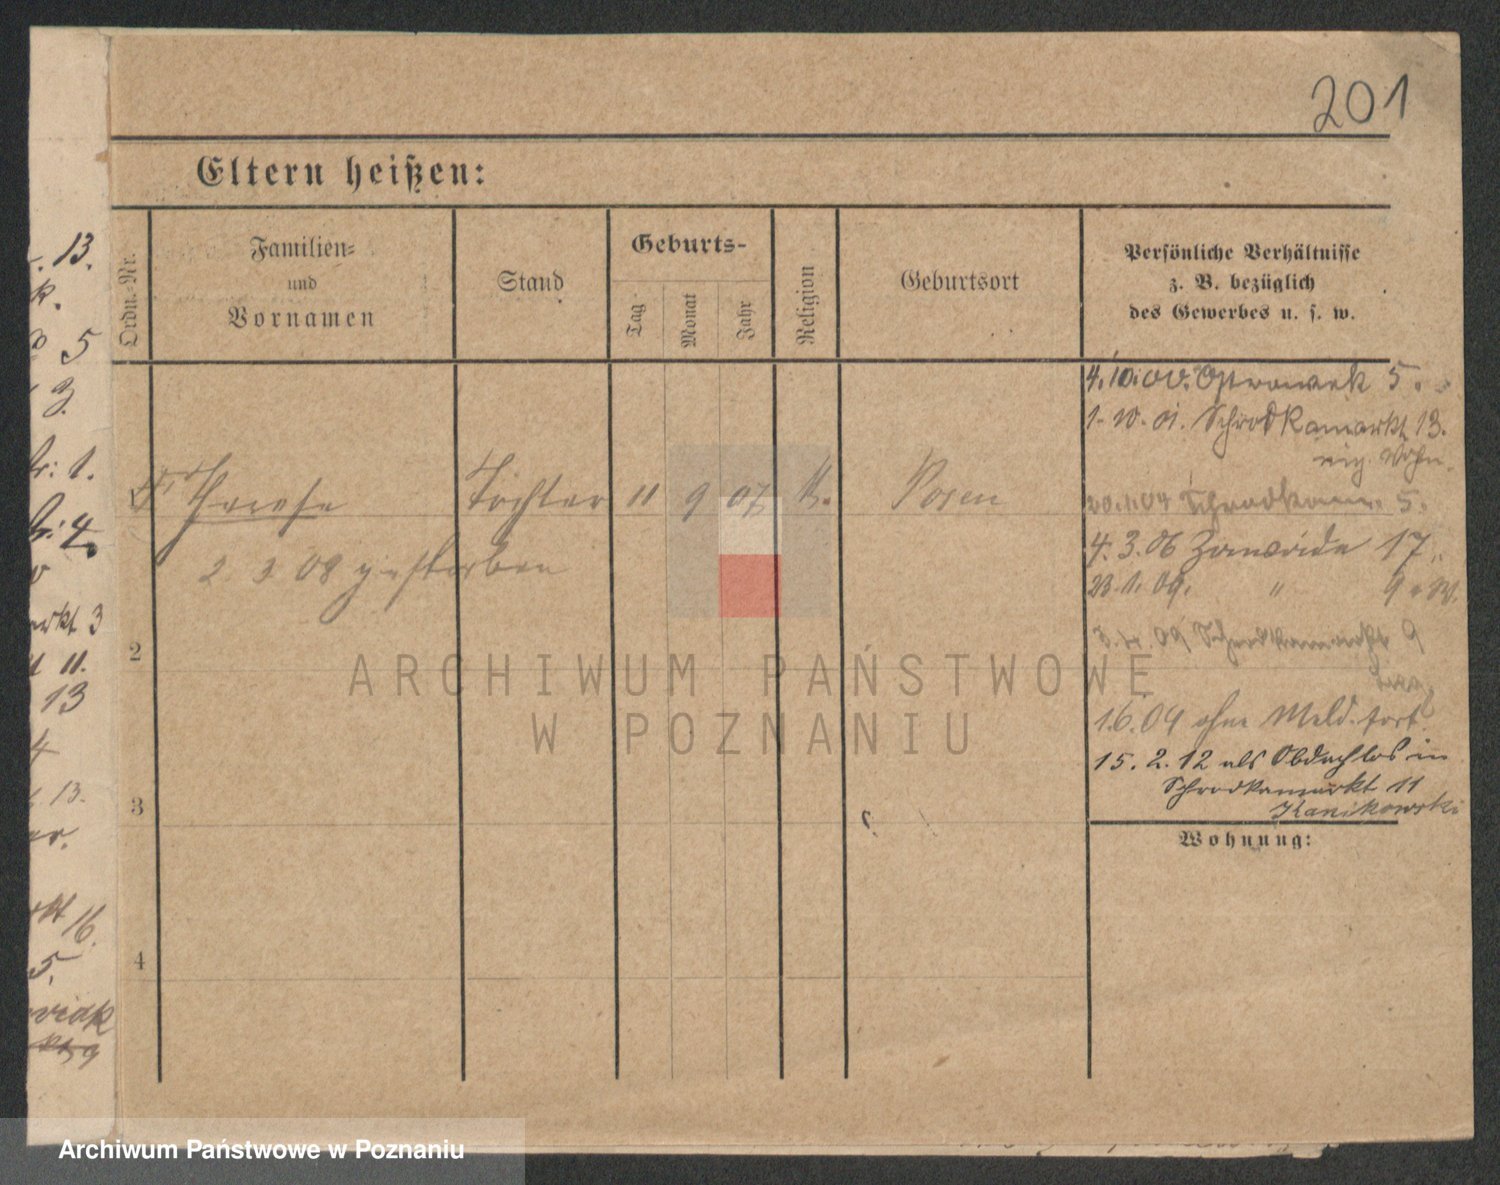 201
Eltern heißen:
Ordn.-Nr.
Familien-
und
Vornamen
Stand
Geburts-
Tag
Monat
Jahr
Religion
Geburtsort
Persönliche Verhältnisse
z. B. bezüglich
des Gewerbes u. s. w.
4.10.00. Ostrowek 5.
1.10.01. Schrodkamarkt 13.
eig. Wohn.
Therese
Tochter
11
9
07
K.
Posen
2 3 08 gestorben
5.
4.3.06 Zawade 17.
23.1.09. " 9
2
09 Schrodkamarkt 9
1.6.09 ohne Meld. fort
15.2.12 als Obdachlos in
Schrodkamarkt 11
Kanikowski
3
Wohnung:
4
13.
k.
5
3.
1.
4.
arkt 3
11.
13
4
13.
er.
rkt 16.
5.
wiak
9
ARCHIWUM PAŃSTWOWE
W POZNANIU
Archiwum Państwowe w Poznaniu